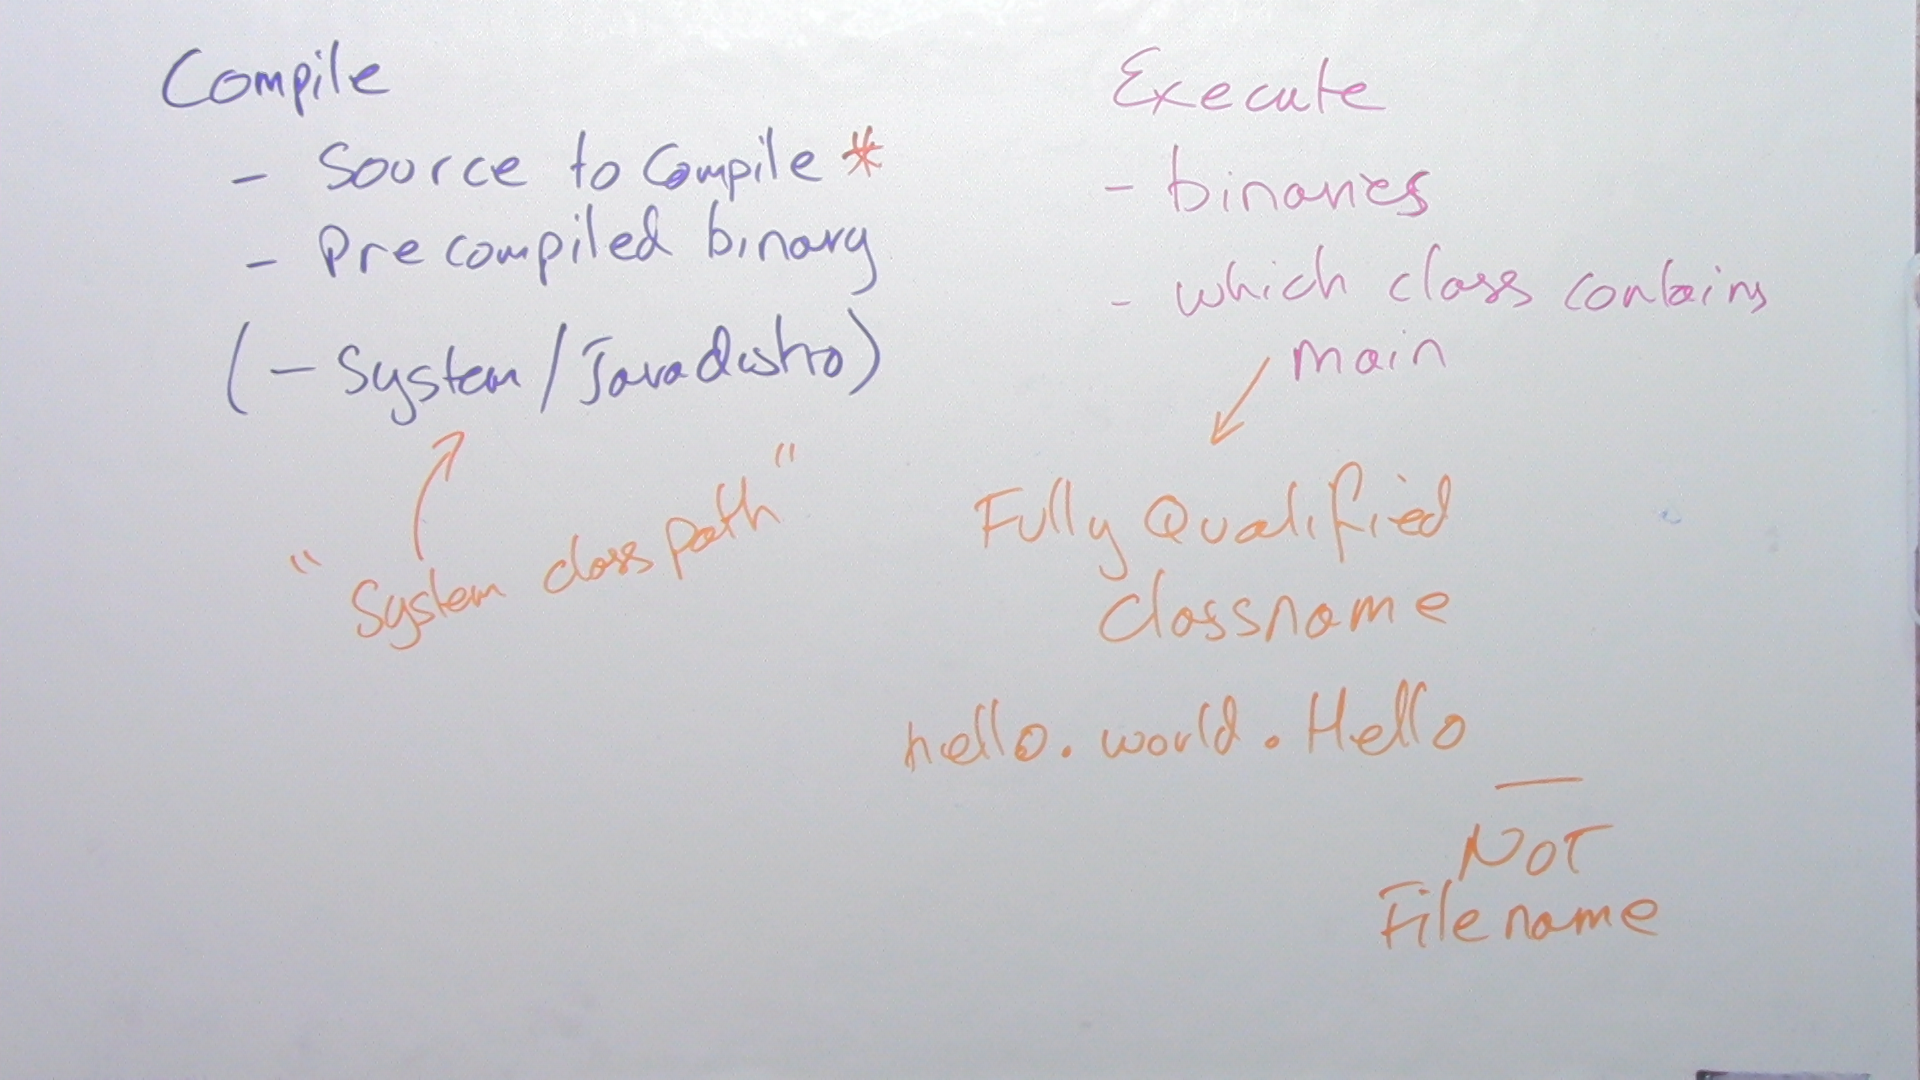 Compile
- Source to Compile *
- Precompiled binary
(- System / Java distro)
"System classpath"
Execute
- binaries
- which class contains
main
Fully Qualified
classname
hello.world.Hello
NOT
Filename